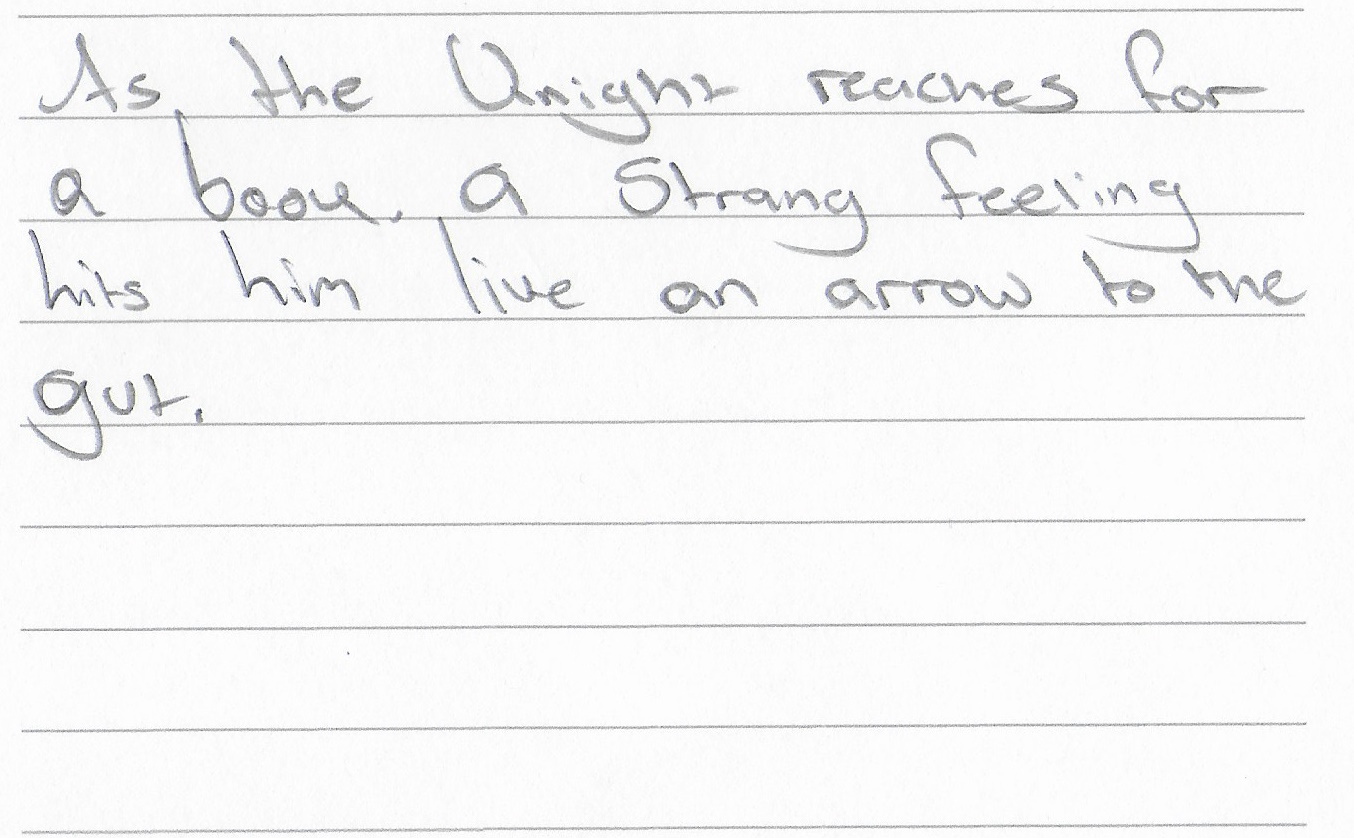 As the Knight reaches for
a book, a Strang feeling
hits him like an arrow to the
gut.